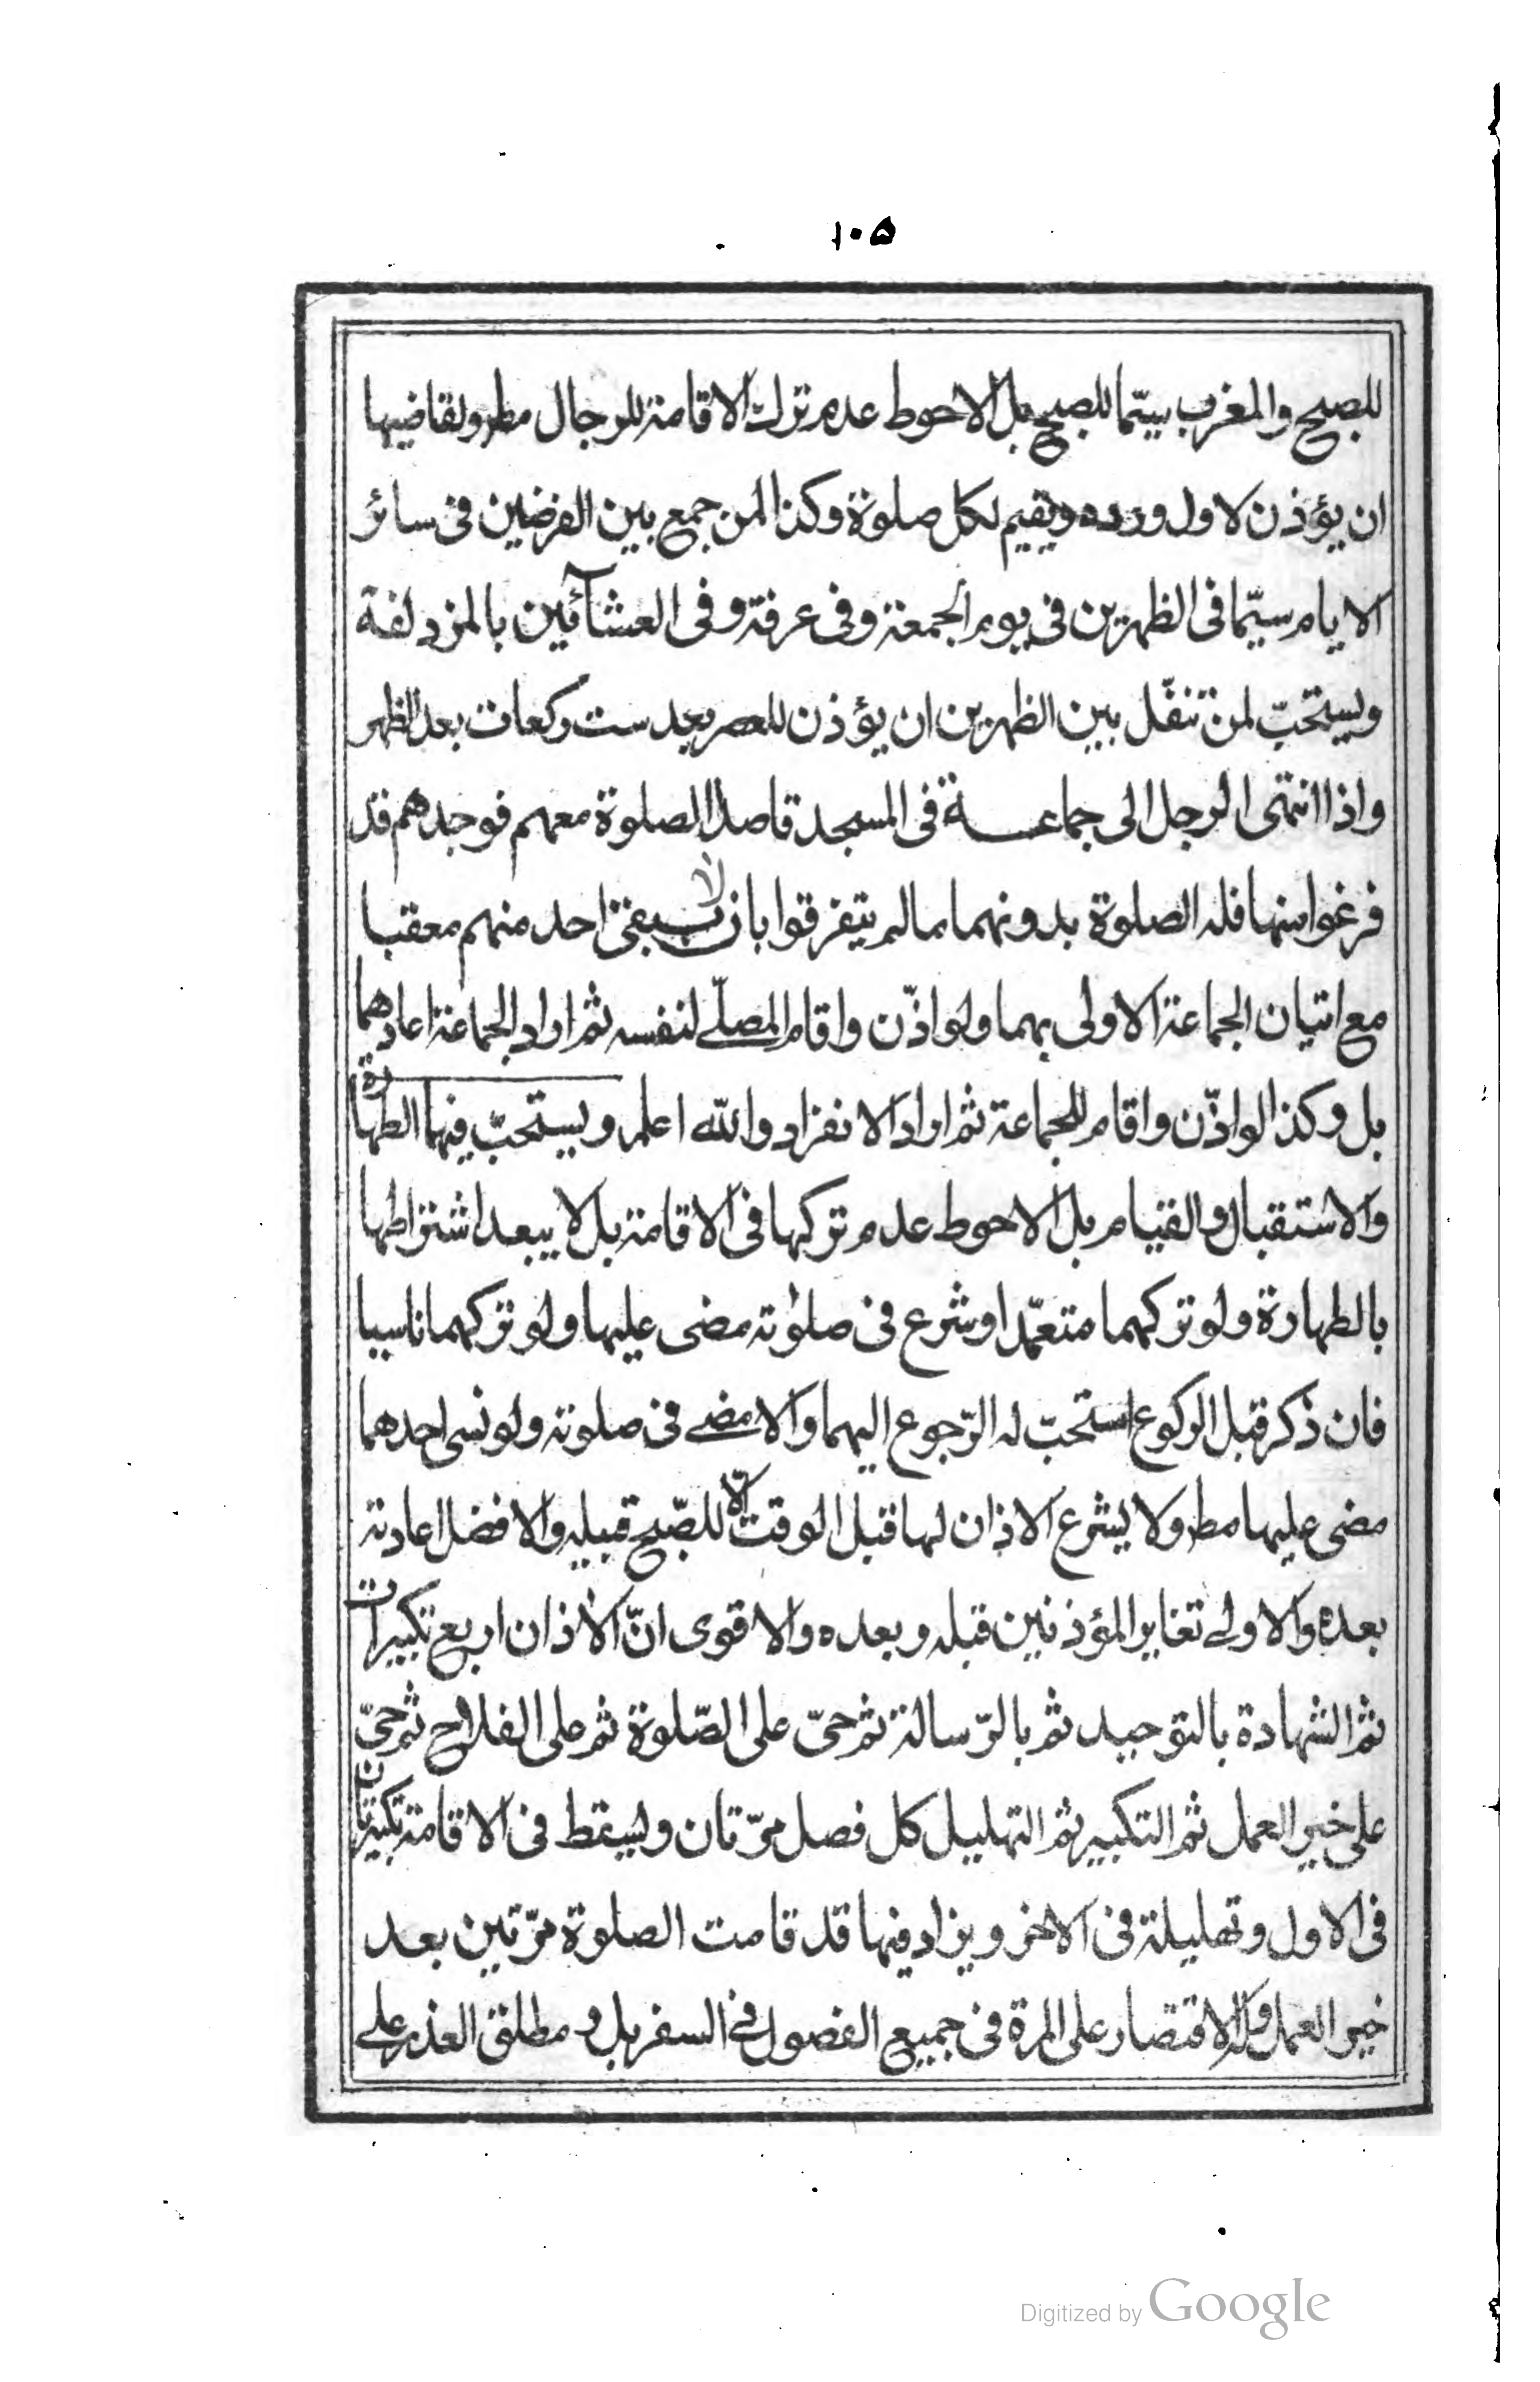 ۱۰۵
للصبح والمغرب سيّما للصبح بل الاحوط عدم ترك الاقامة للرجال مطر ولقاضيها
ان يؤذن لاول ورده ويقيم لكل صلوة وكذا لمن جمع بين الفرضين فى سائر
الايام سيّما فى الظهرين فى يوم الجمعة وفى عرفة وفى العشآئين بالمزدلفة
ويستحبّ لمن تنفّل بين الظهرين ان يؤذن للعصر بعد ست ركعات بعد الظهر
واذا انتهى الرجل الى جماعة فى المسجد قاصدا لصلوة معهم فوجدهم قد
فرغوا منها فله الصلوة بدونهما مالم يتفرقوا بان لا يبقى احد منهم معقبا
مع اتيان الجماعة الاولى بهما ولو اذّن واقام المصلّے لنفسه ثم اراد الجماعة اعادهما
بل وكذا لو اذّن واقام للجماعة ثم اراد الانفراد والله اعلم ويستحبّ فيهما الطهارة
والاستقبال والقيام بل الاحوط عدم تركها فى الاقامة بل لا يبعد اشتراطها
بالطهارة ولو تركهما متعمّدا وشرع فى صلوٰته مضى عليها ولو تركهما ناسيا
فان ذكر قبل الركوع استحبّ له الرّجوع اليهما والا مضے فى صلوته ولو نسى احدهما
مضى عليها مطر ولا يشرع الاذان لها قبل الوقت الا للصّبح قبيله والافضل اعادته
بعده والاولے تغاير المؤذنين قبله وبعده والاقوى انّ الاذان اربع تكبيرات
ثم الشهادة بالتوحيد ثم بالرّسالة ثم حىّ على الصّلوة ثم على الفلاح ثم حىّ
على خير العمل ثم التكبير ثم التهليل كل فصل مرّتان ويسقط فى الاقامة تكبيرتان
فى الاول وتهليلة فى الاخر ويزاد فيها قد قامت الصلوة مرّتين بعد
خير العمل وله الاقتصار على المرة فى جميع الفصول فے السفر بل و مطلق العذر علے
Digitized by Google